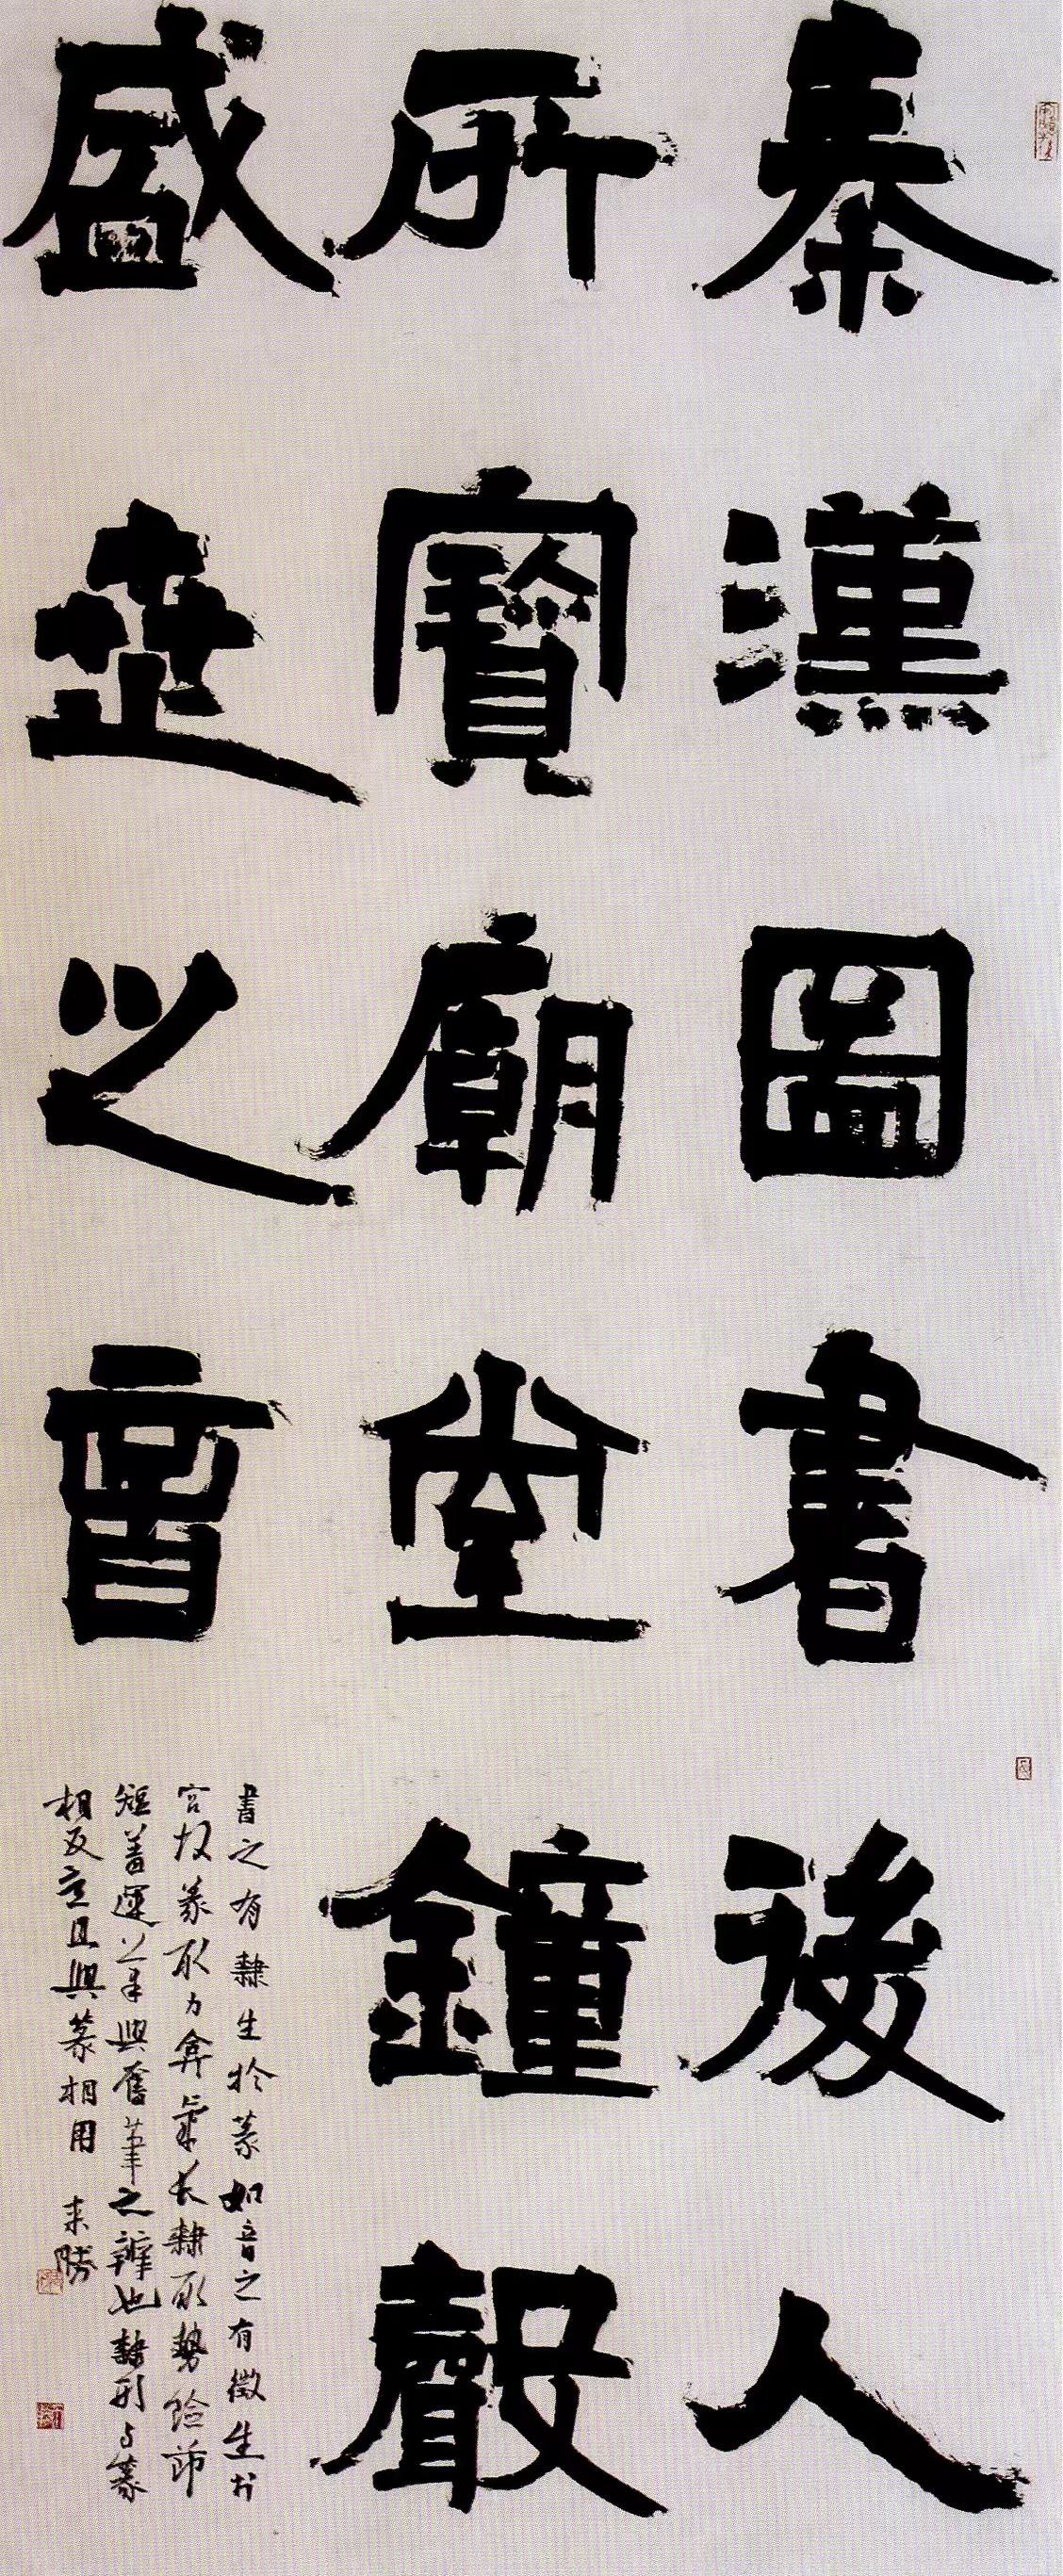 秦漢圖書後人
所寶廟堂鐘聲
盛世之音
書之有隸生於篆如音之有徵生於
宮故篆取力弇氣長隸取勢險節
短蓋運筆與奮筆之辨也隸形与篆
相反意且與篆相用 來勝